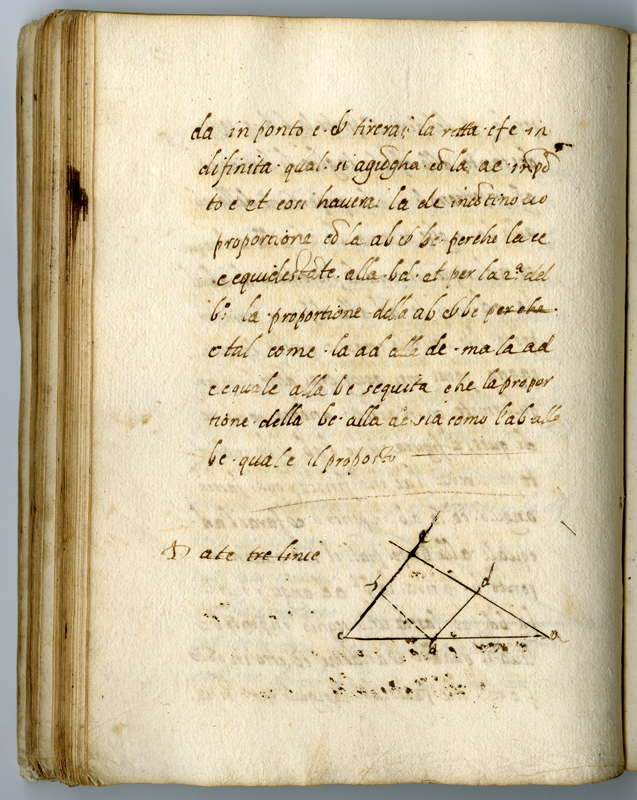 da in ponto e. et tirerai la retta cfe in
difinita qual si agiõgha cõ la ae in põ
to e et cosi havera la de in cõtinovo
proportione cõ la ab et be perche la ce
e equidestãte. alla bd. et per la 2ª del
6º la proportione della ab et be per che
e tal come la ad alla de. ma la ad
e equale alla be seguita che la propor
tione della be alla de sia como l ab alla
be. qual e il proposto
Date tre linie
e
d
f
c
b
a